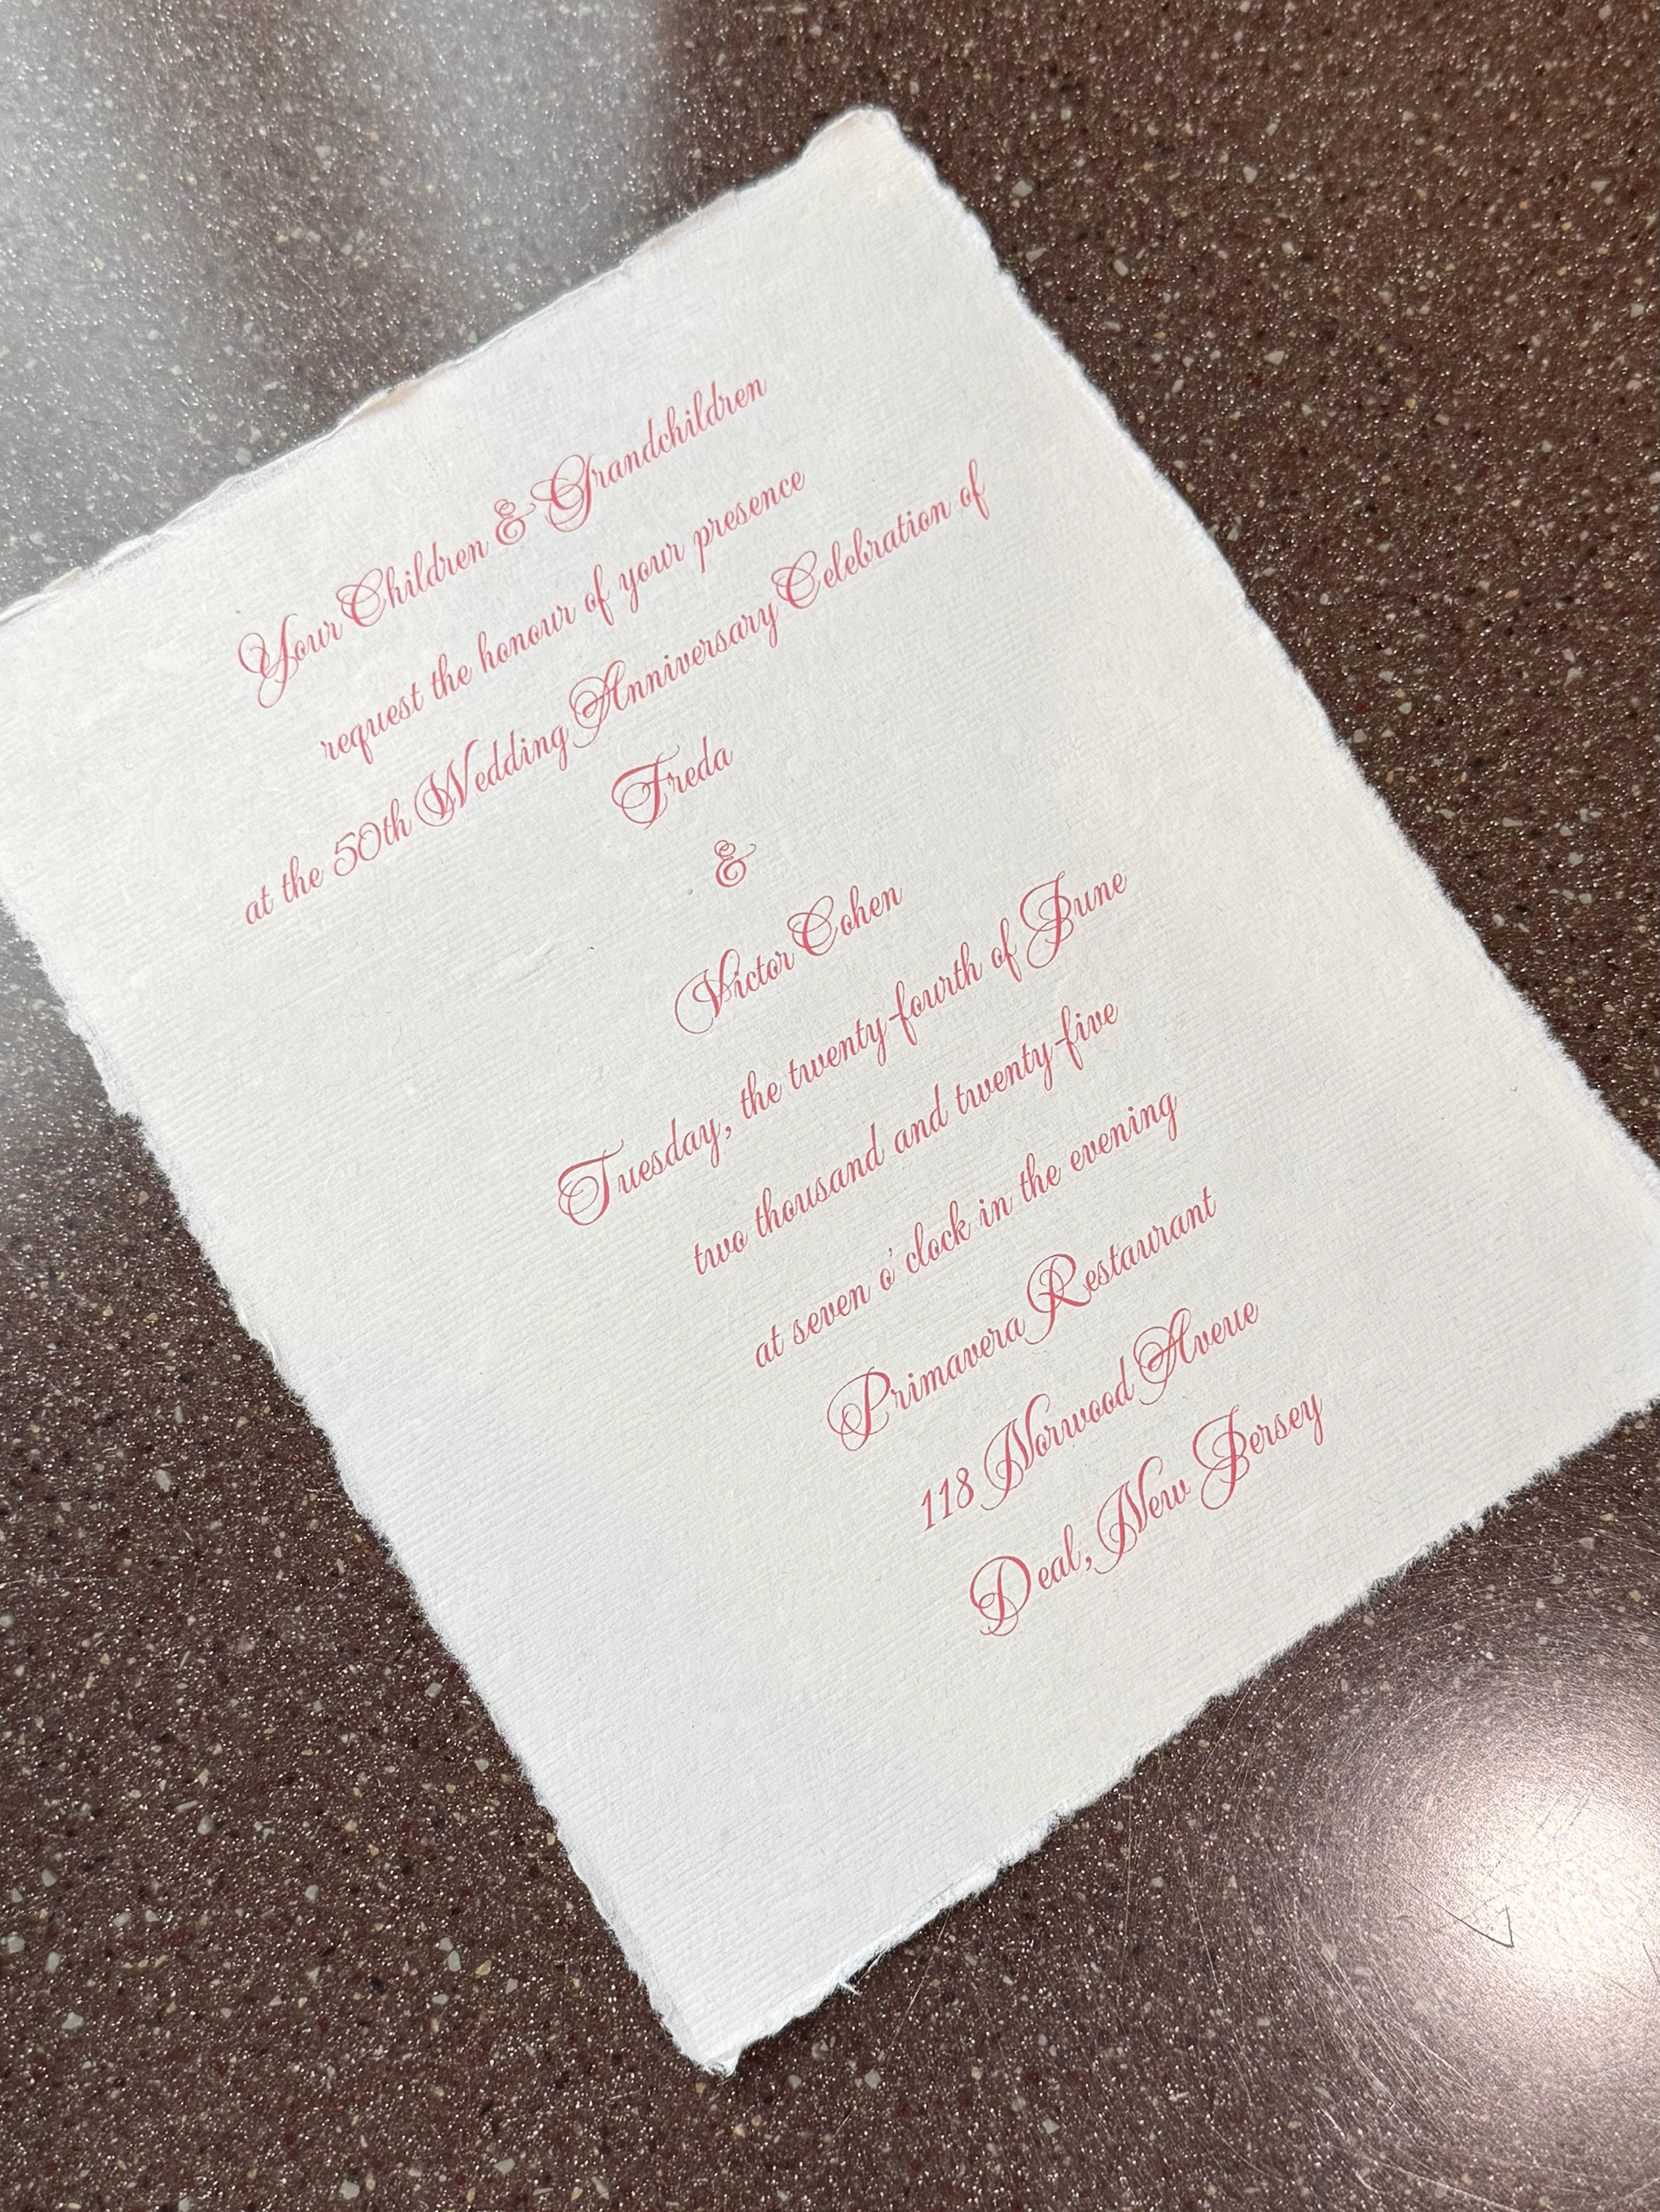 Your Children & Grandchildren
request the honour of your presence
at the 50th Wedding Anniversary Celebration of
Freda
&
Victor Cohen
Tuesday, the twenty-fourth of June
two thousand and twenty-five
at seven o' clock in the evening
Primavera Restaurant
118 Norwood Aveue
Deal, New Jersey